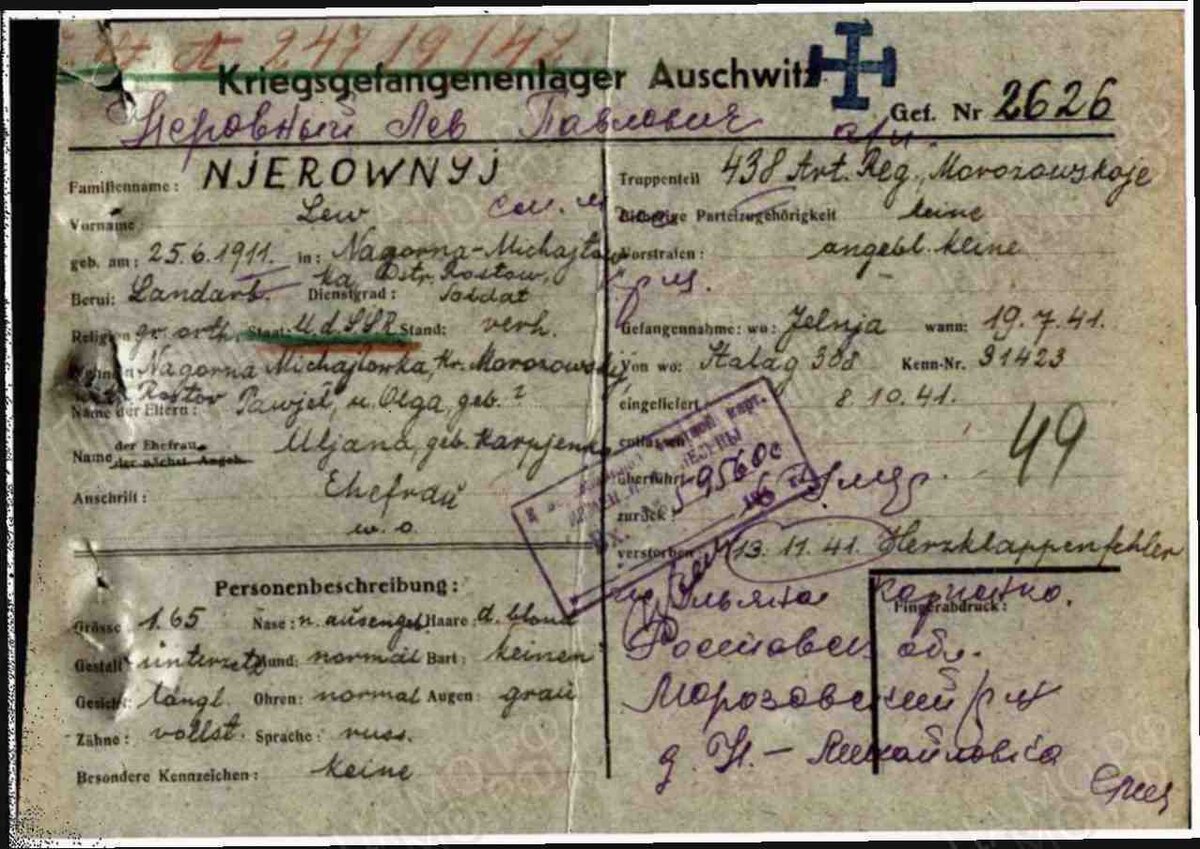 A 24719142
Kriegsgefangenenlager Auschwitz
Gef. Nr 2626
Неровный Лев Павлович
Familienname: NJEROWNYJ
Vorname: Lew
geb. am: 25.6.1911. in: Nagorna-Michajlow
ka, Ostr. Rostow,
Beruf: Landarb. Dienstgrad: Soldat
Religion gr. orth. Staat: UdSSR Stand: verh.
Nagorna Michajlowka, Kr. Morozowskij
Rostov
Name der Eltern: Pawjel, u. Olga, geb. ?
der Ehefrau
Name der nächst. Angeh. Uljana, geb. Karpjenko
Anschrift: Ehefrau
w. o.
Personenbeschreibung:
Grösse 1.65 Nase: n. ausengeb. Haare: d. blond
Gestalt untersetz Mund: normal Bart: keinen
Gesicht längl. Ohren: normal Augen: grau
Zähne: vollst. Sprache: russ.
Besondere Kennzeichen: keine
Truppenteil 438 Art. Reg., Morozowskoje
Bisherige Parteizugehörigkeit keine
Vorstrafen: angebl. keine
Gefangennahme: wo: Jelnja wann: 19.7.41.
Von wo: Stalag 308 Kenn-Nr. 31423
eingeliefert 8.10.41.
49
entlassen
überführt
9560с
zurück:
verstorben 13.11.41. Herzklappenfehler
Ульяна Карпенко.
Fingerabdruck:
Ростовск обл.
Морозовский р-н
д. Н.- Михайловка